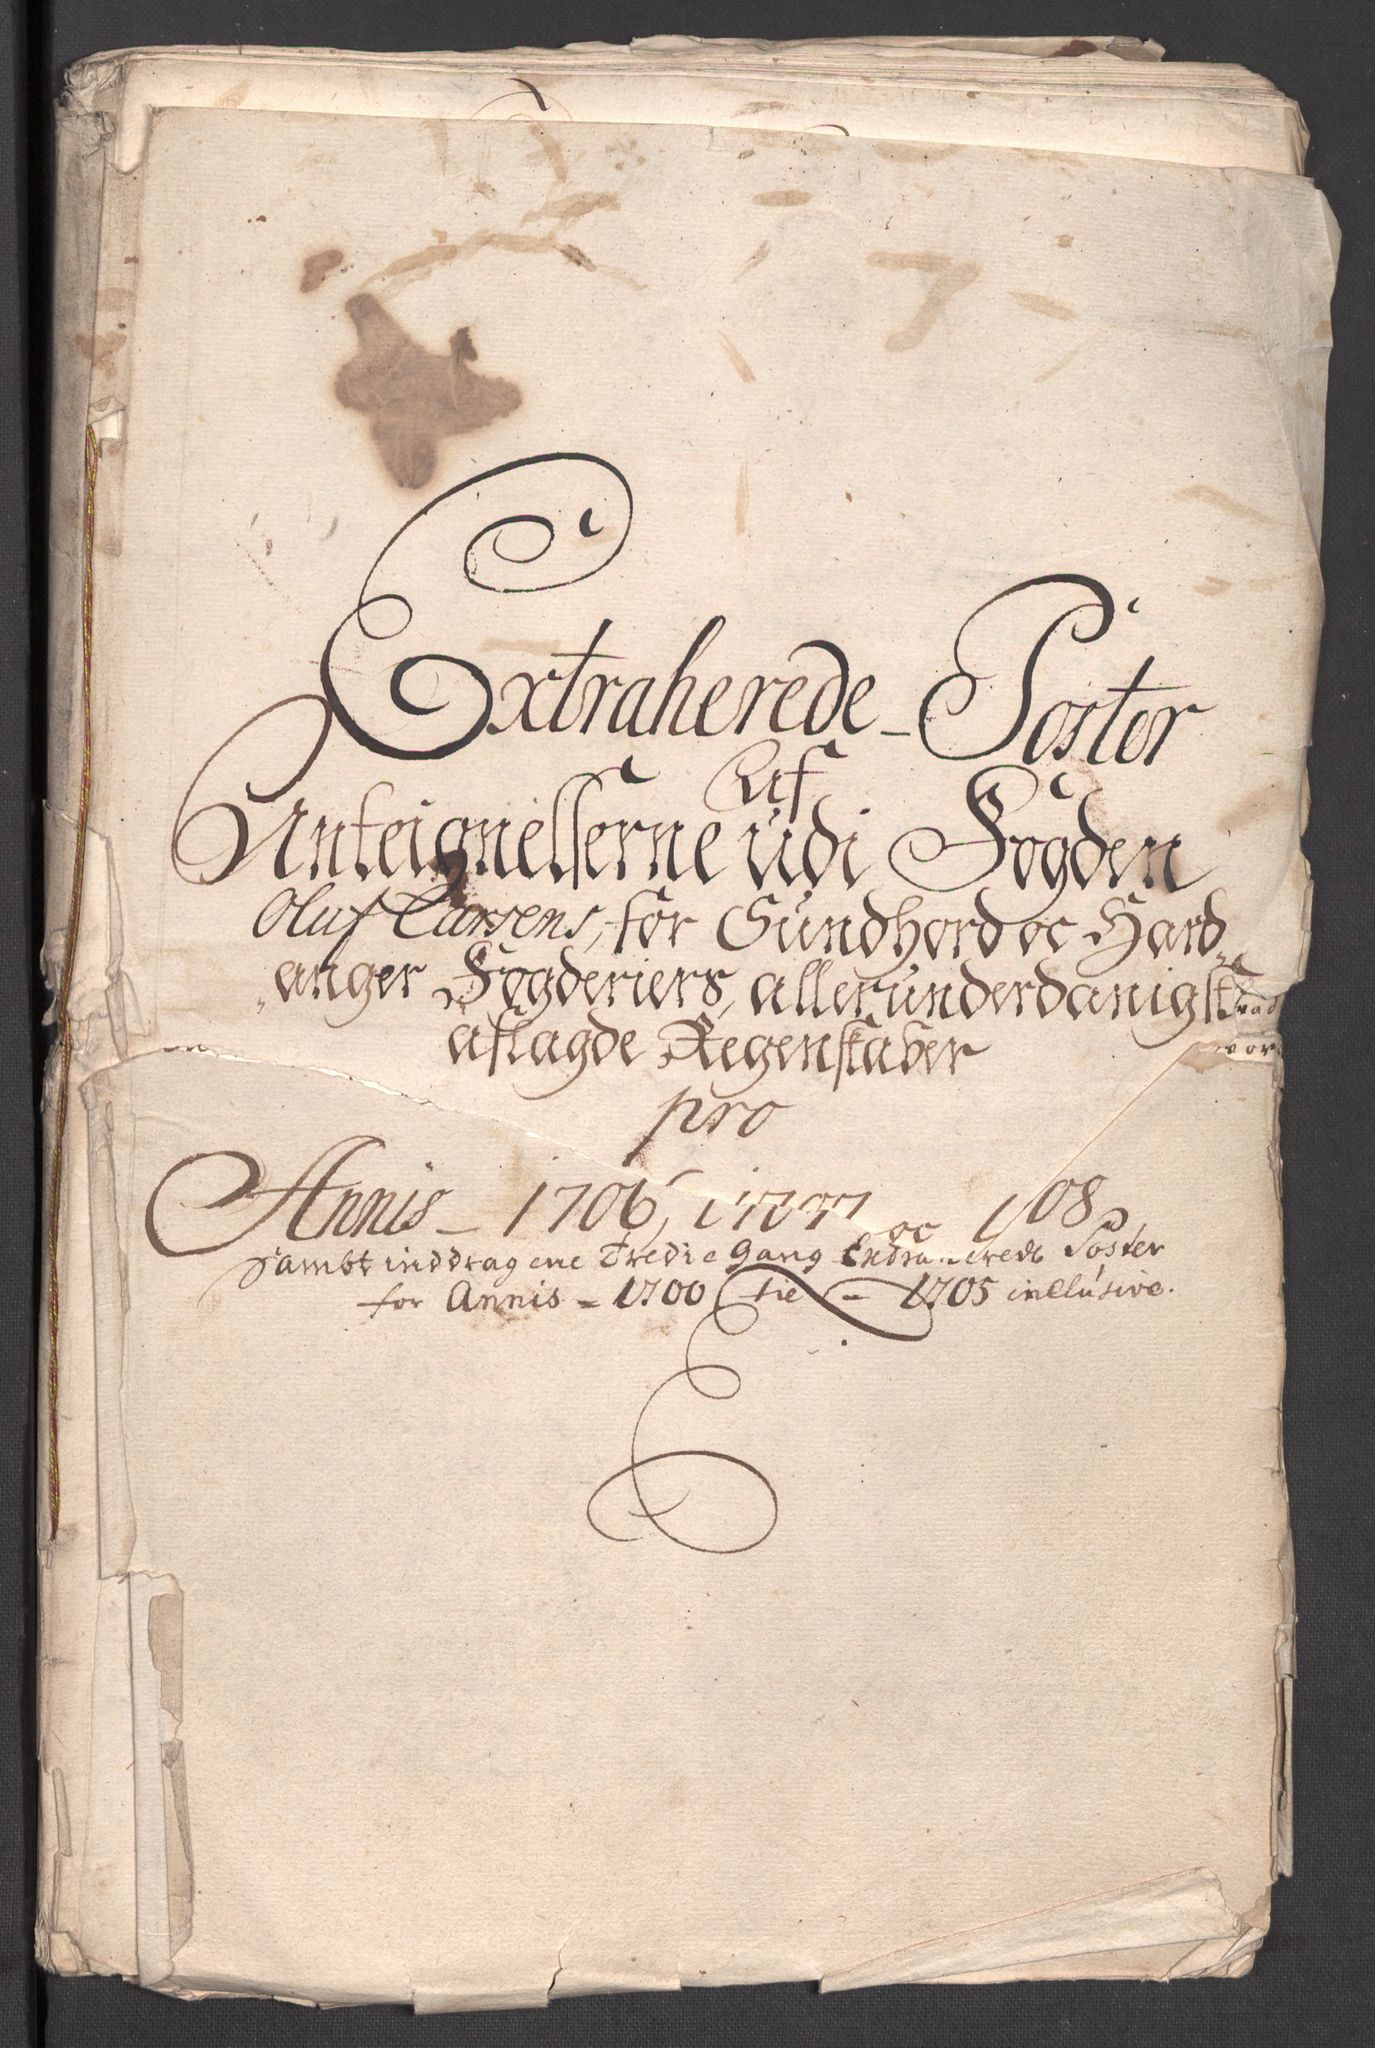 Extraherede Poster
Af
Anteignelserne udi Fogden
Oluf Larsens, for Sundhord oc Hard„
„anger Fogderiers, allerunderdanigst
aflagde Regenskaber
pro
Annis – 1706, 1707 oc 1708,
sambt inddragene Tredie Gang Extraherede Poster
for Annis – 1700 til – 1705 inclusive.